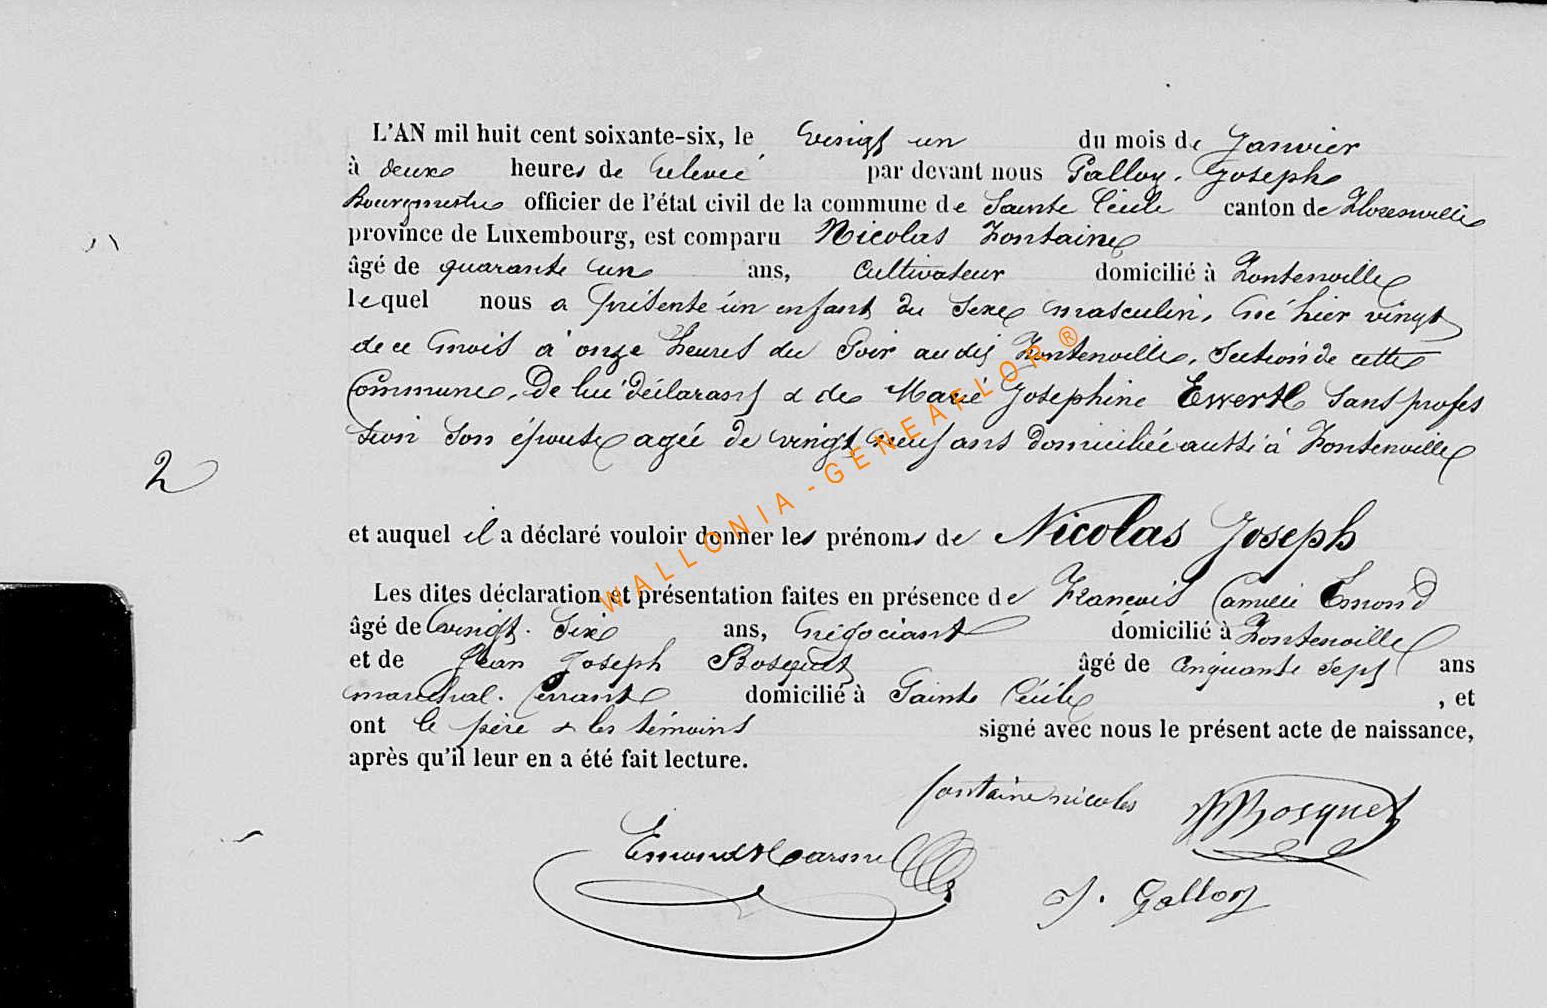 L'AN mil huit cent soixante-six, le vingt un du mois de Janvier
à deux heures de relevée par devant nous Galloy, Joseph
Bourgmestre officier de l'état civil de la commune de Sainte Cécile canton de Florenville
province de Luxembourg, est comparu Nicolas Fontaine
âgé de quarante un ans, Cultivateur domicilié à Fontenoille
lequel nous a présenté un enfant du Sexe masculin, né hier vingt
de ce mois à onze heures du Soir audit Fontenoille, Section de cette
Commune, De lui déclarant & de Marie Josephine Ewert Sans profes
sion Son épouse agée de vingt neuf ans domiciliée aussi à Fontenoille
2
et auquel il a déclaré vouloir donner les prénoms de Nicolas Joseph
Les dites déclaration et présentation faites en présence de François Camille Emond
âgé de vingt-Six ans, négociant domicilié à Fontenoille
et de Jean Joseph Bosquet âgé de Cinquante Sept ans
maréchal-ferrant domicilié à Sainte Cécile , et
ont le père & les témoins signé avec nous le présent acte de naissance,
après qu'il leur en a été fait lecture.
fontaine nicolas
Bosquet
Emond
J. Galloy
WALLONIA - GENEAFLOR ®